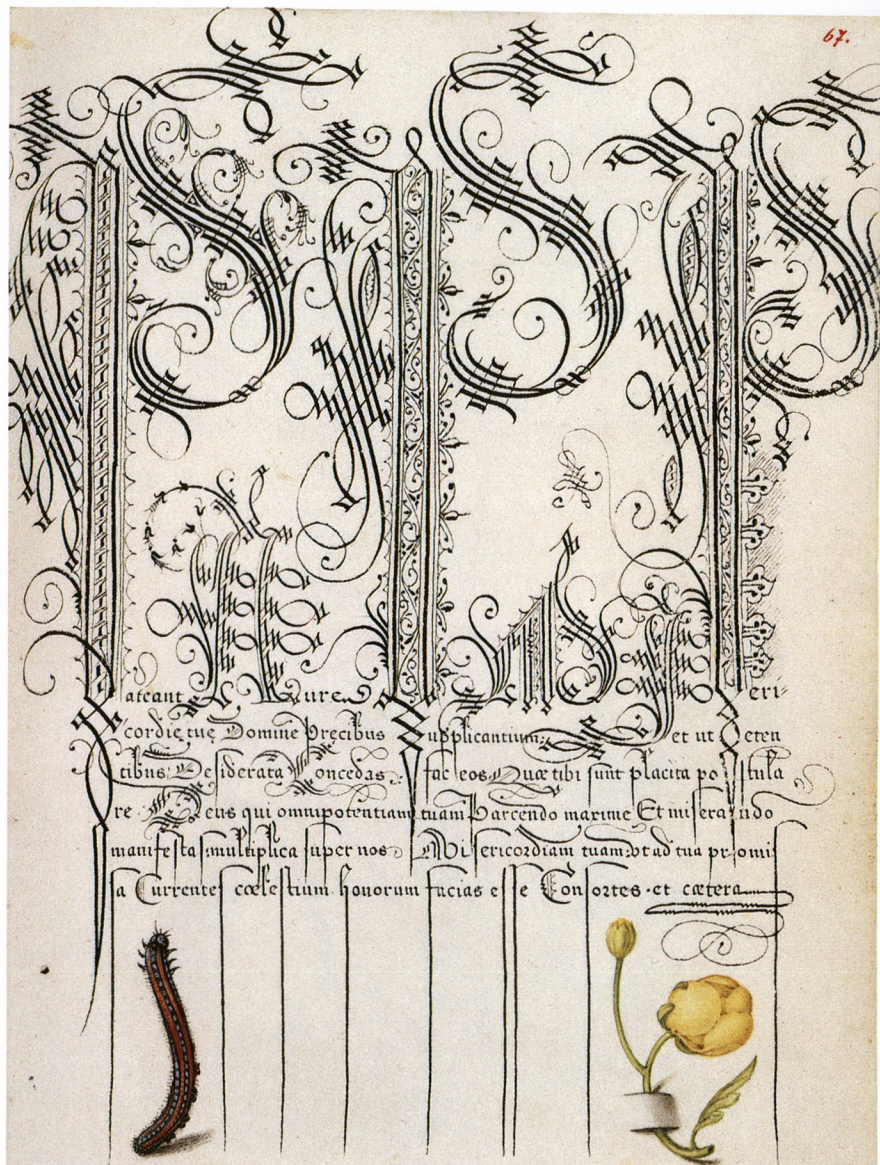 67.
Pateant Aures Miseri
cordie tue Domine Precibus Supplicantium: et ut Peten
tibus Desiderata Concedas: fac eos Quæ tibi sunt placita postula
re Deus qui omnipotentiam tuam Parcendo maxime Et miserando
manifestas: multiplica super nos Misericordiam tuam: vt ad tua promis
sa Currentes cœlestium bonorum facias esse Consortes. et cætera